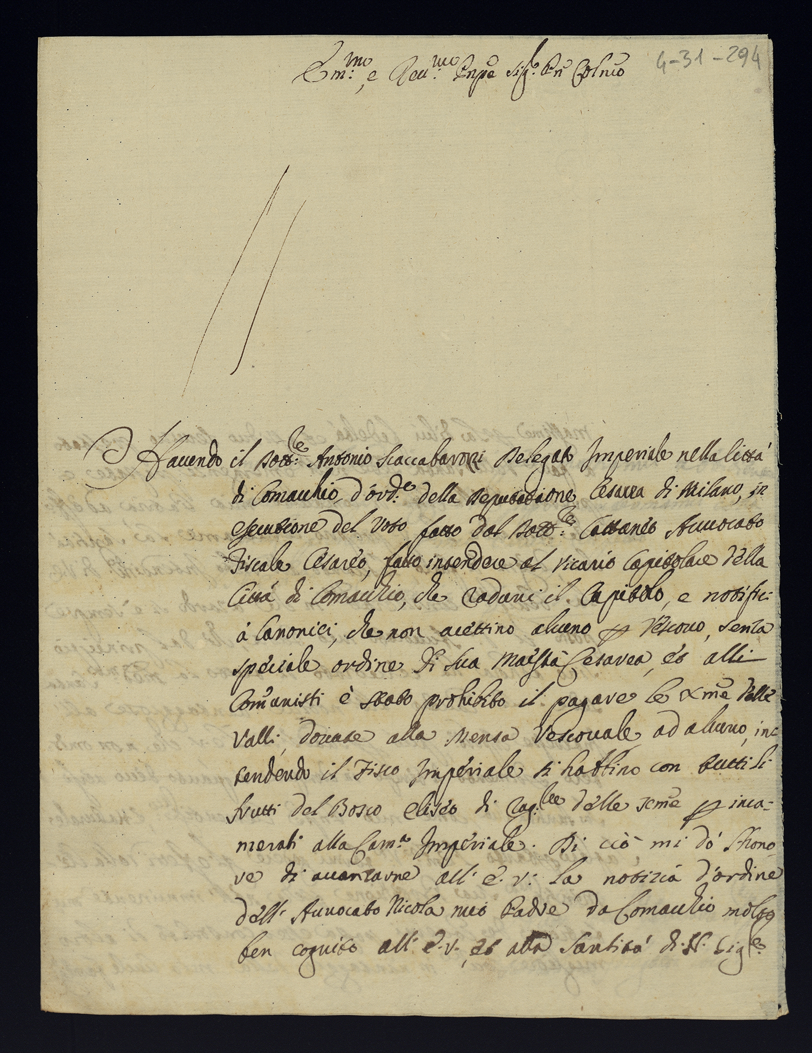 4-31-294
Em.mo e Reu.mo Enpe Sig.r Pn Colmo
Hauendo il Dott.re Antonio Scaccabarozzi Delegato Imperiale nella Città
di Comacchio, d'ord.e della Deputazione Cesarea di Milano, in
esecutione del Voto fatto dal Dott.re Cattaneo Auuocato
Fiscale Cesareo, fatto intendere al Vicario Capitolare della
Città di Comacchio, che raduni il Capitolo, e notifichi
à Canonici, che non acettino alcuno p Vescouo, senza
speciale ordine di Sua Maestà Cesarea, et alli
Comanisti è stato prohibito il pagare le Xme delle
Valli, douute alla Mensa Vescouale ad alcuno, in
tendendo il Fisco Imperiale si hattino con tutti li
frutti del Bosco Eliseo di rag.ne delle Xme p inca-
merati alla Cam.a Imperiale. Di ciò mi dò l'hono
re di auanzarne all' E. V. la notizia d'ordine
dell' Auuocato Nicola mio Padre da Comacchio molto
ben cognito all' E. V., et alla Santità di N. Sig.re